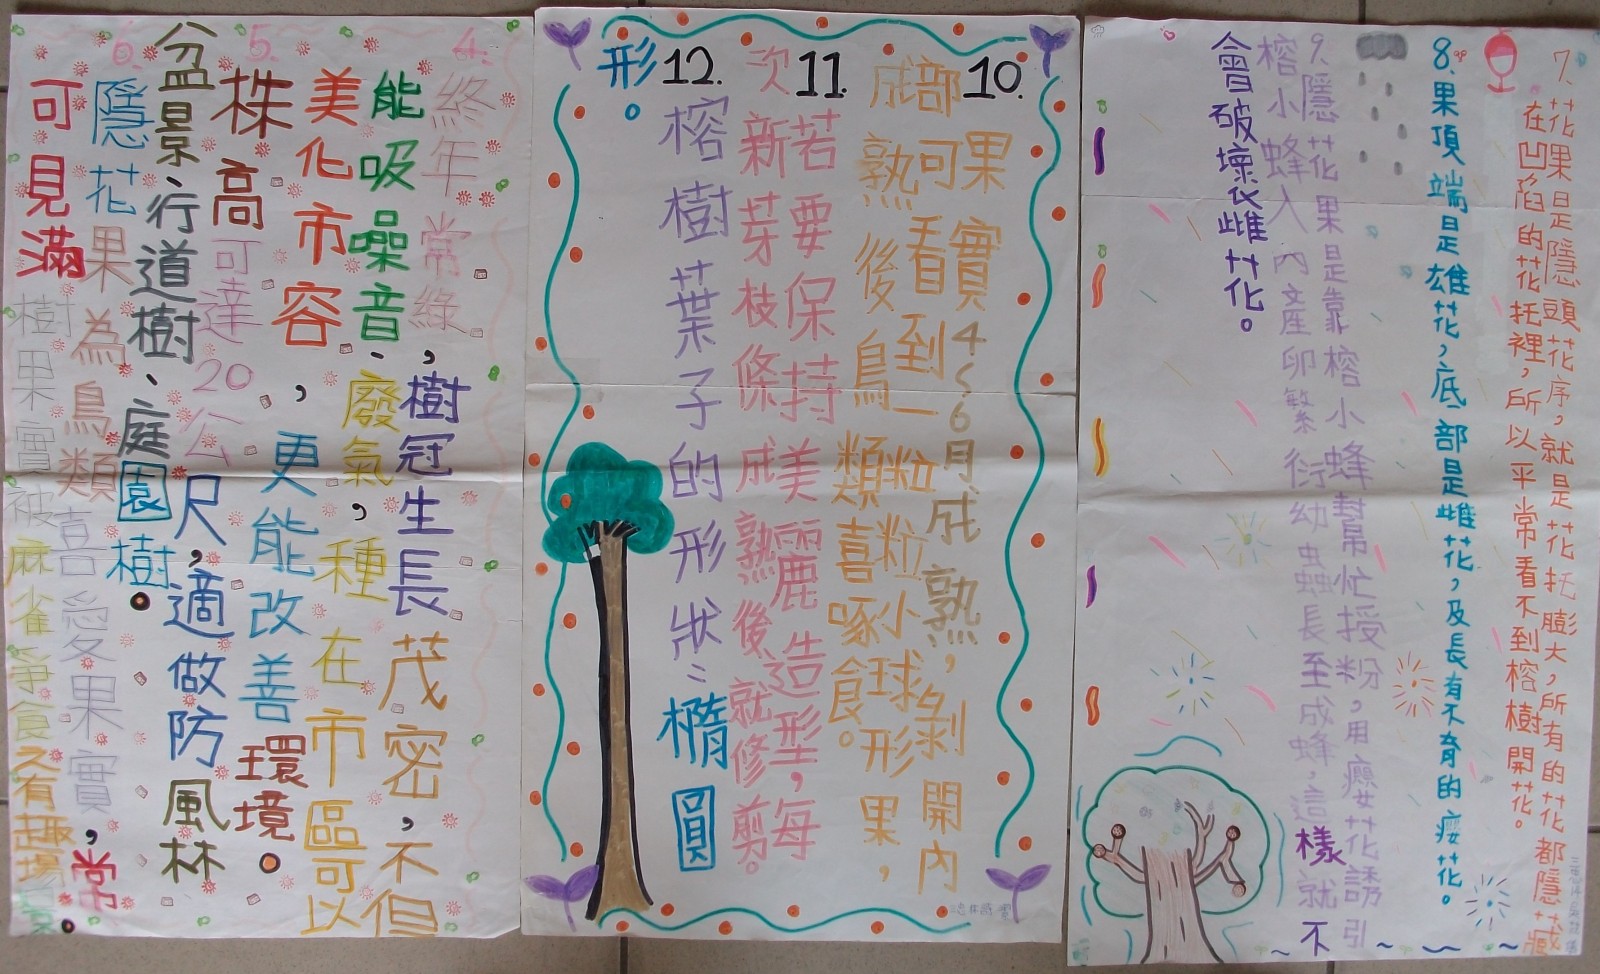 7.花果是隱頭花序，就是花托膨大，所有的花都隱藏
在凹陷的花托裡，所以平常看不到榕樹開花。
8.果頂端是雄花，底部是雌花，及長有不育的癭花。
9.隱花果是靠榕小蜂幫忙授粉，用癭花誘引
榕小蜂入內產卵繁衍幼蟲長至成蜂，這樣就不
會破壞雌花。
10.果實4~6月成熟，剝開內
部可看到一粒粒小球形果，
成熟後鳥類喜啄食。
11.若要保持美麗造型，每
次新芽枝條成熟後就修剪。
12.榕樹葉子的形狀:橢圓
形。
4.終年常綠，樹冠生長茂密，不但
能吸噪音、廢氣，種在市區可以
美化市容，更能改善環境。
5.株高可達20公尺，適做防風林
盆景、行道樹、庭園樹。
6.隱花果為鳥類喜愛果實，常
可見滿樹果實被麻雀爭食之有趣場景。